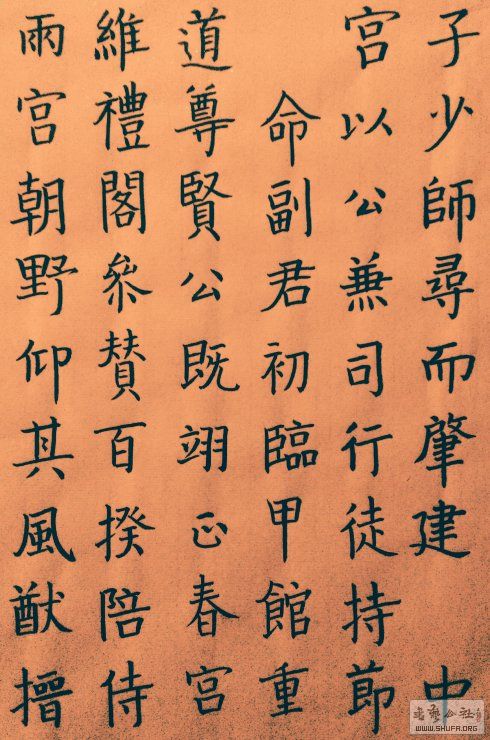 子少師尋而肇建 中
宮以公兼司行徒持節
命副君初臨甲館重
道尊賢公既翊正春宮
維禮閣叅賛百揆陪侍
兩宮朝野仰其風猷搢
WWW.SHUFA.ORG